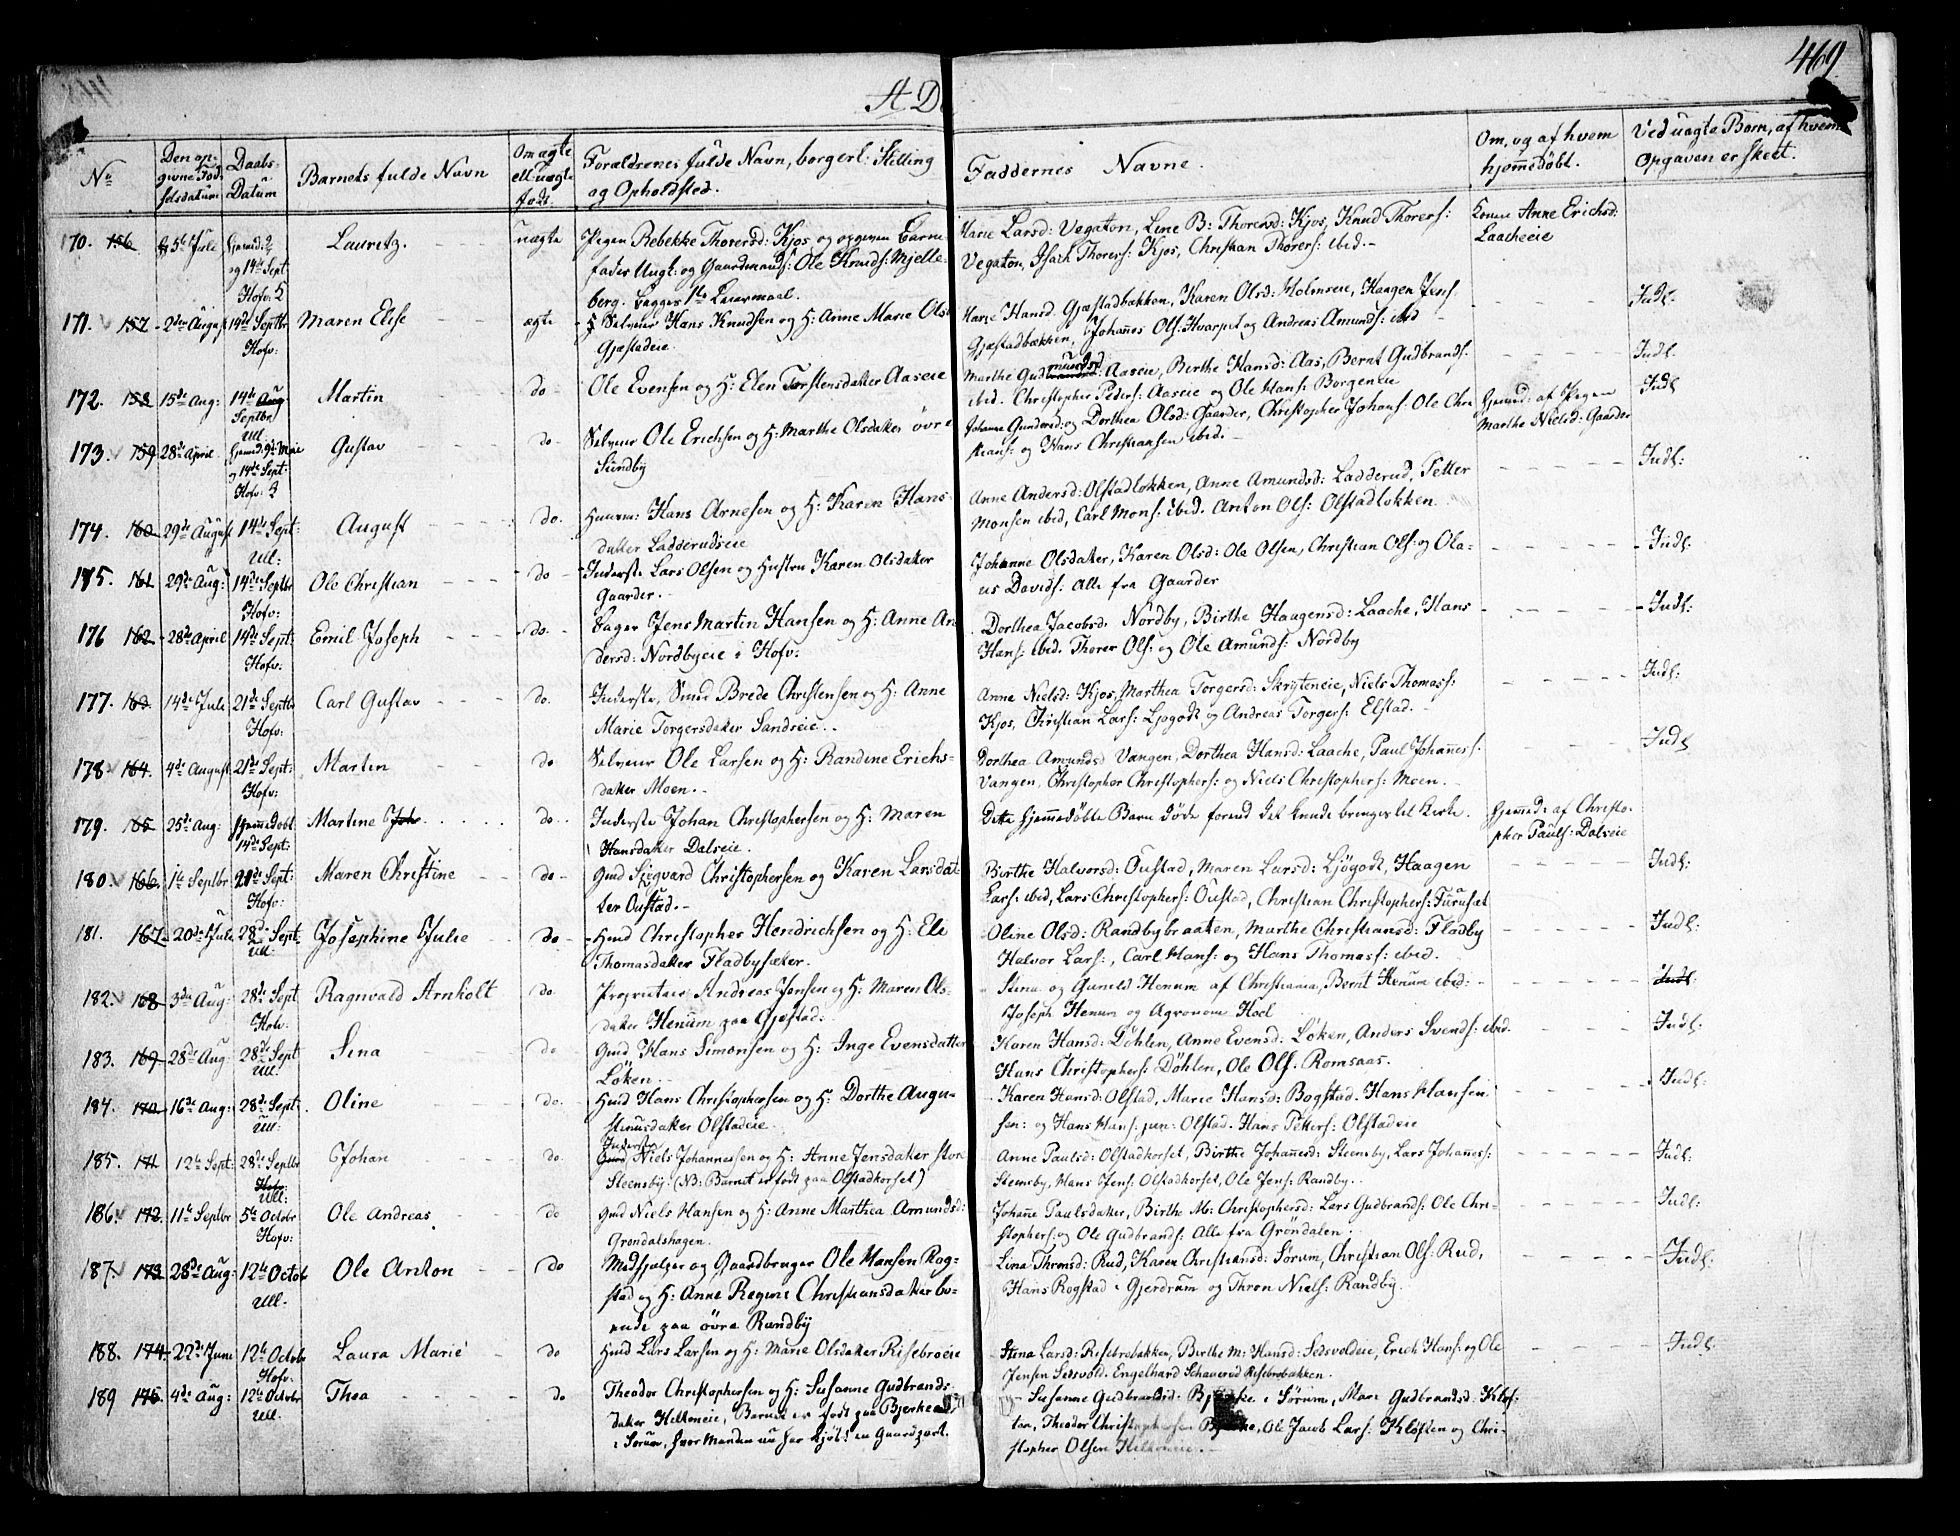 469
A D
No
Den opgivne Fødselsdatum
Daabs-Datum
Barnets fulde Navn
Om ægte ell. uægte født
Forældrenes fulde Navn, borgerl: Stilling og Opholdsted.
Faddernes Navne.
Om, og af hvem hjemmedøbt.
Ved uægte Børn, af hvem Opgaven er skeet.
170. 156 5te Juli Hjemmed: og 14de Sept Hofv: Lauretz. uægte Pigen Rebekke Thorersd: Kjos og opgiven Barnefader Ungk: og Gaardmands: Ole Knuds: Mjelleberg. begges 1ste Leiermaal.
Marie Larsd: Vegaton, Line B: Thorersd: Kjos, Knud Thorers: Vegaton, Isach Thorers: Kjos, Christian Thorers: ibid. Konen Anne Erichsd: Laacheeie
171. 157 2den August 14de Septbr Hofv: Maren Elise ægte Selveier Hans Knudsen og H: Anne Marie Ols Gjæstadeie.
Marie Hansd: Gjæstadbækken, Karen Olsd: Holmseie, Haagen Jens: Gjæstadbækken, Johannes Ols: Hvarpet og Andreas Amunds: ibid Indl:
172. 158 15de Aug: 14de Aug Septbr Ull. Martin do Ole Evensen og H: Elen Torstensdatter Aaseie
Marthe Gudmundsd: Aaseie, Birthe Hansd: Aas, Bernt Gudbrands: ibid. Christopher Peders: Aaseie og Ole Hans: Borgeneie Indl:
173. 159 28de April Hjemmed: 9de Maie og 14de Sept: Hofv: Gustav do. Selveier Ole Erichsen og H: Marthe Olsdatter øvre Sundby
Johanne Gundersd: og Dorthea Olsd: Gaarder, Christopher Johans: Ole Christians: og Hans Christiansen ibid. Hjemmed: af Pigen Marthe Nielsd: Gaarder Indl
174. 160 29de August 14de Sept: Ull: August do. Huusm: Hans Arnesen og H: Karen Hansdatter Ladderudseie
Anne Andersd: Olstadløkken, Anne Amundsd: Ladderud, Petter Monsen ibid, Carl Mons: ibid. Anton Ols: Olstadløkken Indl:
175. 161 29de Aug: 14de Septbr Hofv: Ole Christian do Inderste Lars Olsen og Hustru Karen Olsdatter Gaarder.
Johanne Olsdatter, Karen Olsd: Ole Olsen, Christian Ols: og Olaus Davids: Alle fra Gaarder Indl:
176 162 28de April 14de Sept: Hofv: Emil Joseph do. Bager Jens Martin Hansen og H: Anne Andersd: Nordbyeie i Hofv:
Dorthea Jacobsd. Nordby, Birthe Haagensd: Laache, Hans Hans: ibid. Thorer Ols: og Ole Amunds: Nordby Indl:
177. 163. 14de Juli 21de Septbr Hofv: Carl Gustav do. Inderste, Smed Brede Christensen og H: Anne Marie Torgersdatter Sandseie.
Anne Nielsd: Kjos, Marthea Torgersd: Skryteneie, Niels Thomas: Kjos, Christian Lars: Ljøgodt og Andreas Torgers: Elstad. Indl:
178 164. 4de August 21de Sept: Hofv: Martin do Selveier Ole Larsen og H: Randine Erichsdatter Moen.
Dorthea Amundsd Vangen, Dorthea Hansd: Laache, Paul Johannes: Vangen, Christopher Christophers: og Niels Christophers: Moen. Indl
179. 165 25de Aug: Hjemmedøbt 14de Sept: Martine Joh do. Inderste Johan Christophersen og H: Maren Hansdatter Dalseie.
Dette hjemmedøbte Barn døde førend det kunde bringes til Kirke. Hjemmed: af Christopher Pauls: Dalseie
180. 166. 1ste Septbr 21de Sept: Hofv: Maren Christine do Gmd Sigvard Christophersen og Karen Larsdatter Oustad.
Birthe Halvorsd: Oustad, Maren Larsd: Ljøgodt, Haagen Lars: ibid, Lars Christophers: Oustad, Christian Christophers: Furuset Indl:
181. 167. 20de Juli 28de Sept: Ull: Josephine Julie do Hmd Christopher Hendrichsen og H: Eli Thomasdatter Fladbysæter.
Oline Olsd: Randbybraaten, Marthe Christiansd: Fladby Halvor Lars:, Carl Hans: og Hans Thomas: ibid. Indl:
182. 168. 3die Aug: 28de Sept Hofv. Ragnvald Arnholt do. Proprietair Andreas Jensen og H: Maren Olsdatter Henum paa Gjæstad:
Stina og Gunild Henum af Christiania, Bernt Henum ibid: Joseph Henum og Agronom Hoel Indl:
183. 169. 28de Aug: 28de Sept Ull: Sina do Gmd Hans Simonsen og H: Inge Evensdatter Løken.
Karen Hansd: Døhlen, Anne Evensd: Løken, Anders Svends: ibid. Hans Christophers: Døhlen, Ole Ols: Romsaas. Indl:
184. 170. 16de Aug: 28de Sept: Ull: Oline do. Hmd Hans Christophersen og H: Dorthe Augustinusdatter Olstadeie.
Karen Hansd: Olstad, Marie Hansd: Bogstad. Hans Hansen sen: og Hans Hans: jun: Olstad. Hans Petters: Olstadeie Indl:
185. 171 12te Sept: 28de Septbr Hofv: Ull: Johan do. Inderste Gmd Niels Johannessen og H: Anne Jensdatter Store Steensby. (NB: Barnet er født paa Olstadkorset)
Anne Paulsd: Olstadkorset, Birthe Johannesd: Steensby, Lars Johannes: Steensby, Hans Jens: Olstadkorset, Ole Jens: Randby. Indl:
186. 172. 11te Septbr 5te Octobr Hofv: Ole Andreas do Gmd Niels Hansen og H: Anne Marthea Amundsd: Grøndalshagen.
Johanne Paulsdatter, Birthe M: Christophersd: Lars Gudbrands: Ole Christophers: og Ole Gudbrands: Alle fra Grøndalen. Indl:
187. 173 28de Aug: 12te Octob Ull. Ole Anton do Medhjælper og Gaardbruger Ole Hansen Rogstad og H: Anne Regine Christiansdatter boende paa øvre Randby
Lina Thronsd: Rud, Karen Christiansd: Sørum, Christian Ols: Rud, Hans Rogstad i Gjerdrum og Thron Niels: Randby. Indl:
188. 174. 22de Juni 12te Octobr Hofv. Laura Marie do Hmd Lars Larsen og H: Marie Olsdatter Risebroeie
Stina Larsd: Risebrobakken, Birthe M: Hansd: Sedsvoldeie, Erich Hans: og Ole Jensen Sedsvold. Engelhard Schauerud Risebrobakken. Indl
189 175. 4de Aug: 12te Octobr Ull. Thea do Theodor Christophersen og H: Susanne Gudbrandsdatter Hilkoneie, Barnet er født paa Bjerke i Sørum, hvor Manden nu har kjøbt en Gaardpart.
Susanne Gudbrandsd. i Sørum, Mari Gudbrandsd. Kløften, Theodor Christophersen, Ole Jacob Lars: Kløften og Christopher Olsen Hilkoneie.